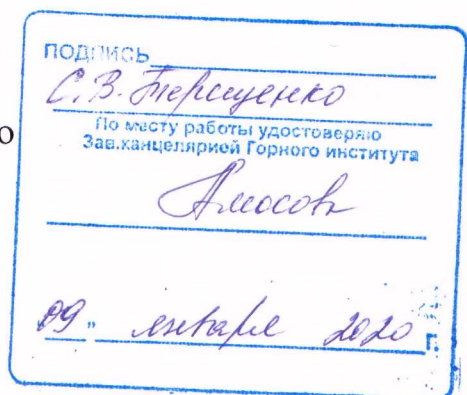 ПОДПИСЬ
С.В. Терещенко
о
По месту работы удостоверяю
Зав.канцелярией Горного института
Амосов
09 „ января 2020 г.